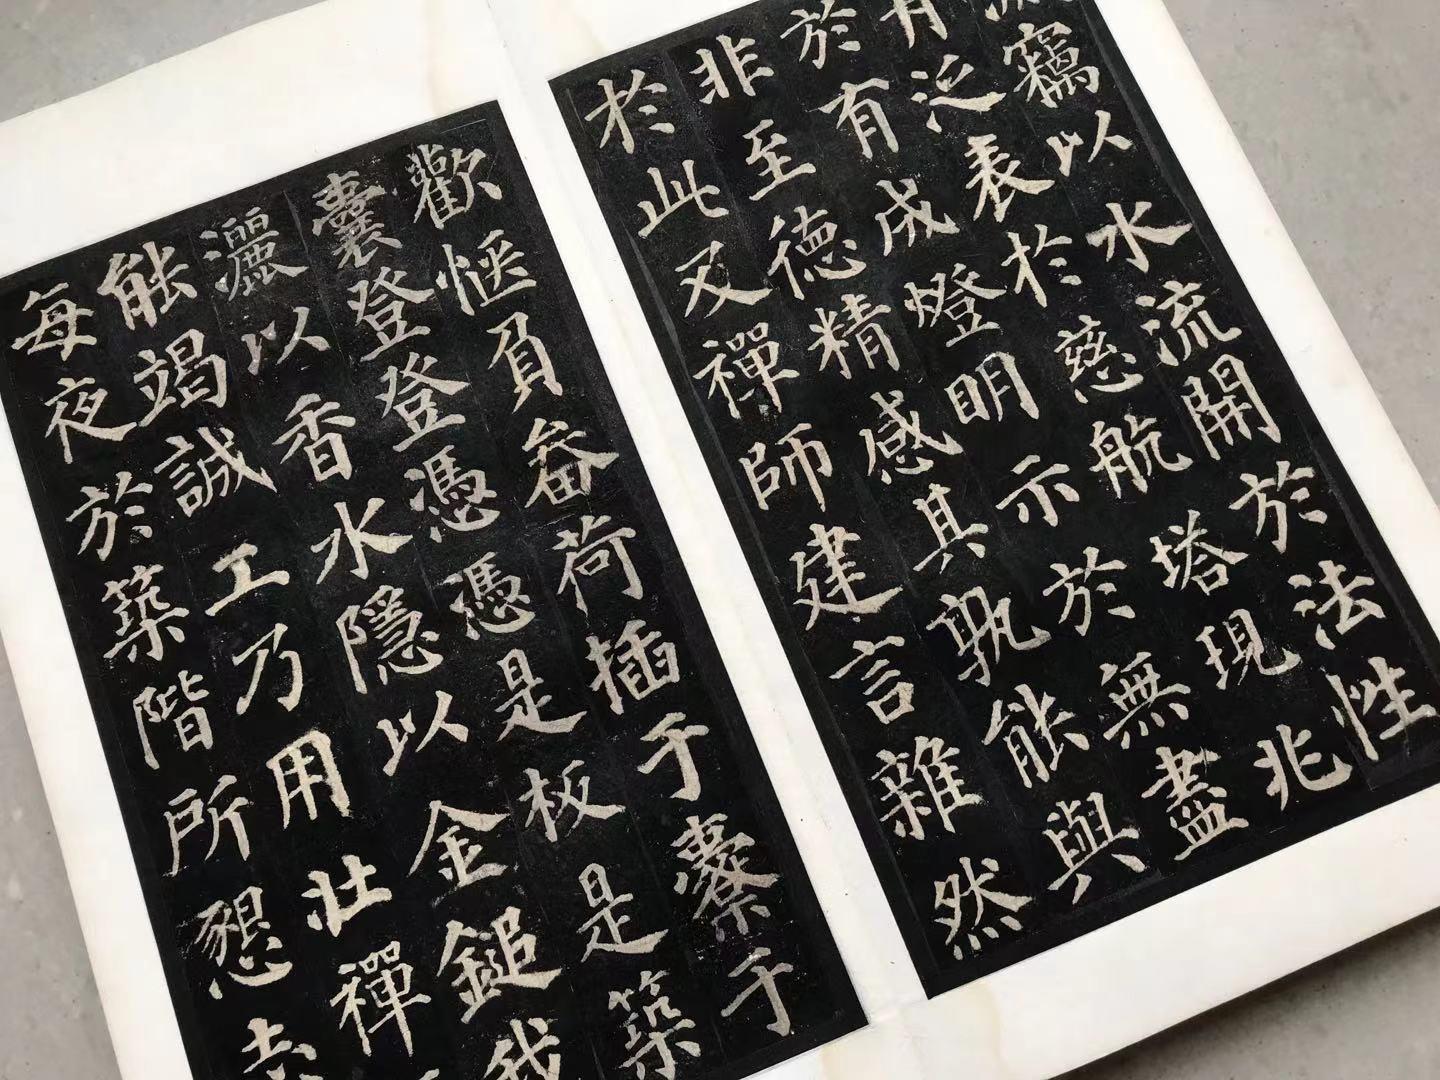 滅竊以水流開於法性
舟泛表於慈航塔現兆
於有成燈明示於無盡
非至德精感其孰能與
於此及禪師建言雜然
歡愜負畚荷插于橐于
囊登登憑憑是板是築
灑以香水隱以金鎚我
能竭誠工乃用壯禪
每夜於築階所懇志